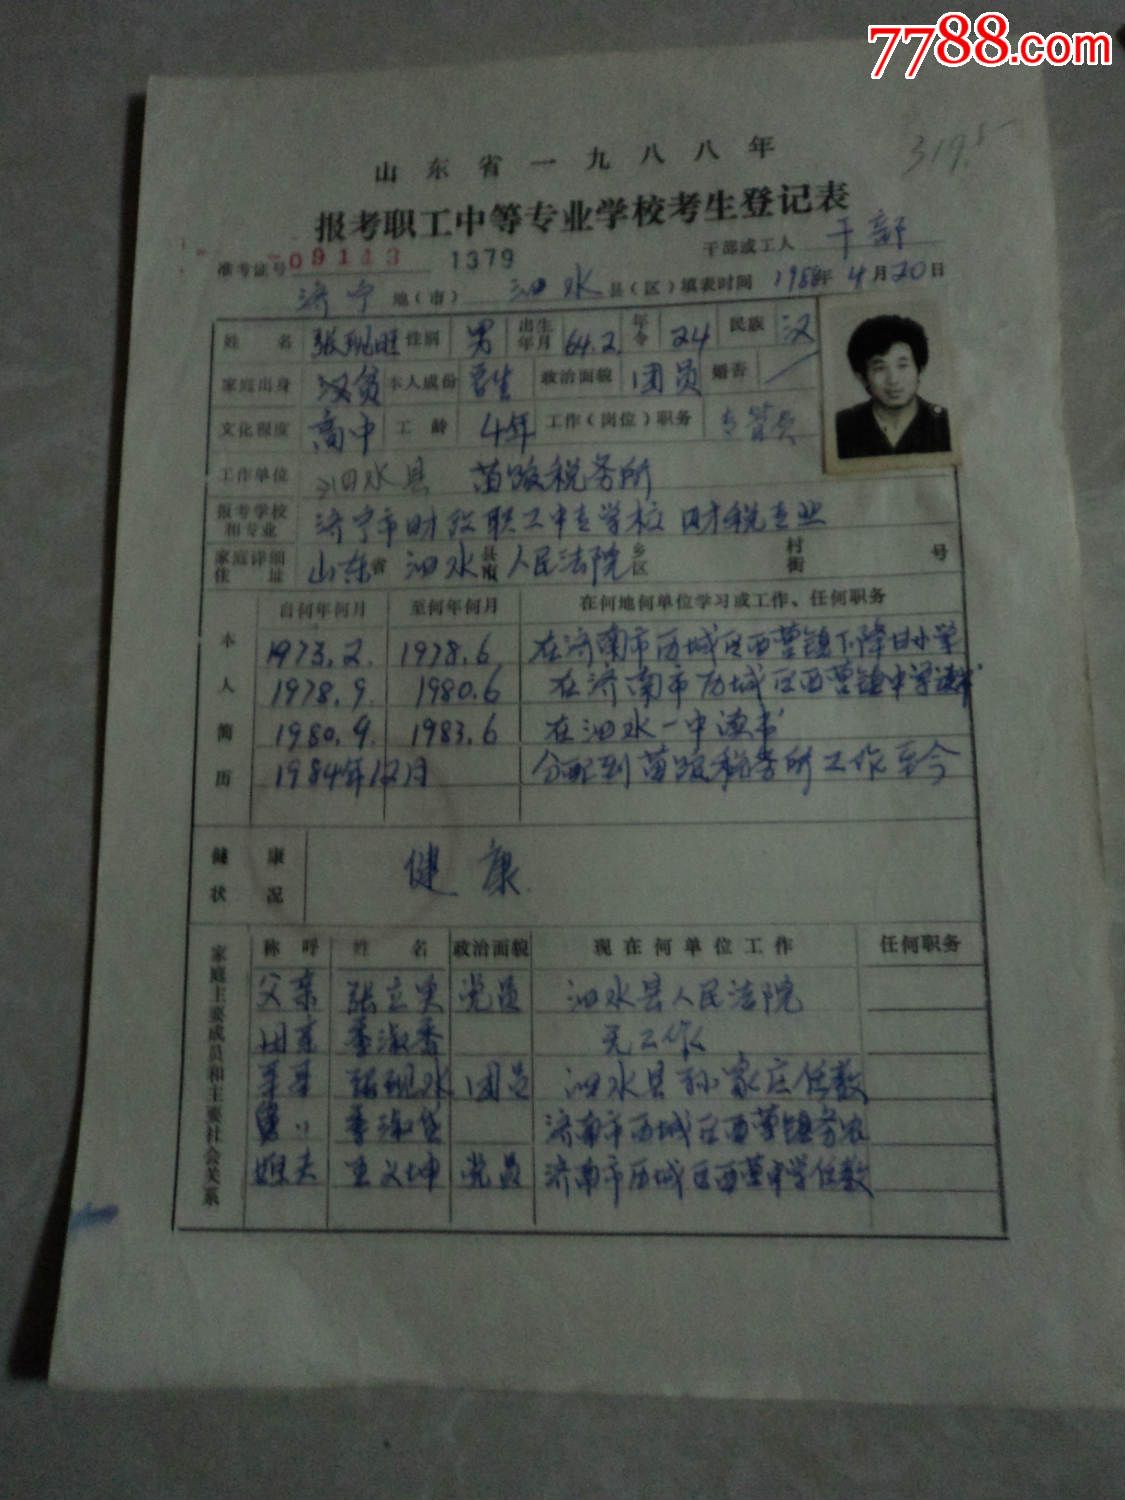 7788.com
319.5
山东省一九八八年
报考职工中等专业学校考生登记表
干部或工人 干部
准考证号 09143 1379
济宁 地(市) 泗水 县(区) 填表时间 1988年4月20日
姓名 张 性别 男 出生年月 64.2. 年令 24 民族 汉
家庭出身 本人成份 学生 政治面貌 团员 婚否
文化程度 高中 工龄 4年 工作(岗位)职务 专管员
工作单位 泗水县 苗馆税务所
报考学校和专业 济宁市财政职工中专学校 财税专业
家庭详细住址 山东省 泗水县市 人民法院 乡区 村街 号
本人简历
自何年何月 至何年何月 在何地何单位学习或工作、任何职务
1973.2. 1978.6 在济南市历城区西营镇下降甘小学
1978.9. 1980.6 在济南市历城区西营镇中学读书
1980.9. 1983.6 在泗水一中读书
1984年12月 分配到苗馆税务所工作至今
健康状况 健康
家庭主要成员和主要社会关系
称呼 姓名 政治面貌 现在何单位工作 任何职务
父亲 张立 党员 泗水县人民法院
母亲 季淑香 无工作
张 水 团员 泗水县孙家庄任教
季淑 济南市历城区西营镇务农
姐夫 王义坤 党员 济南市历城区西营中学任教